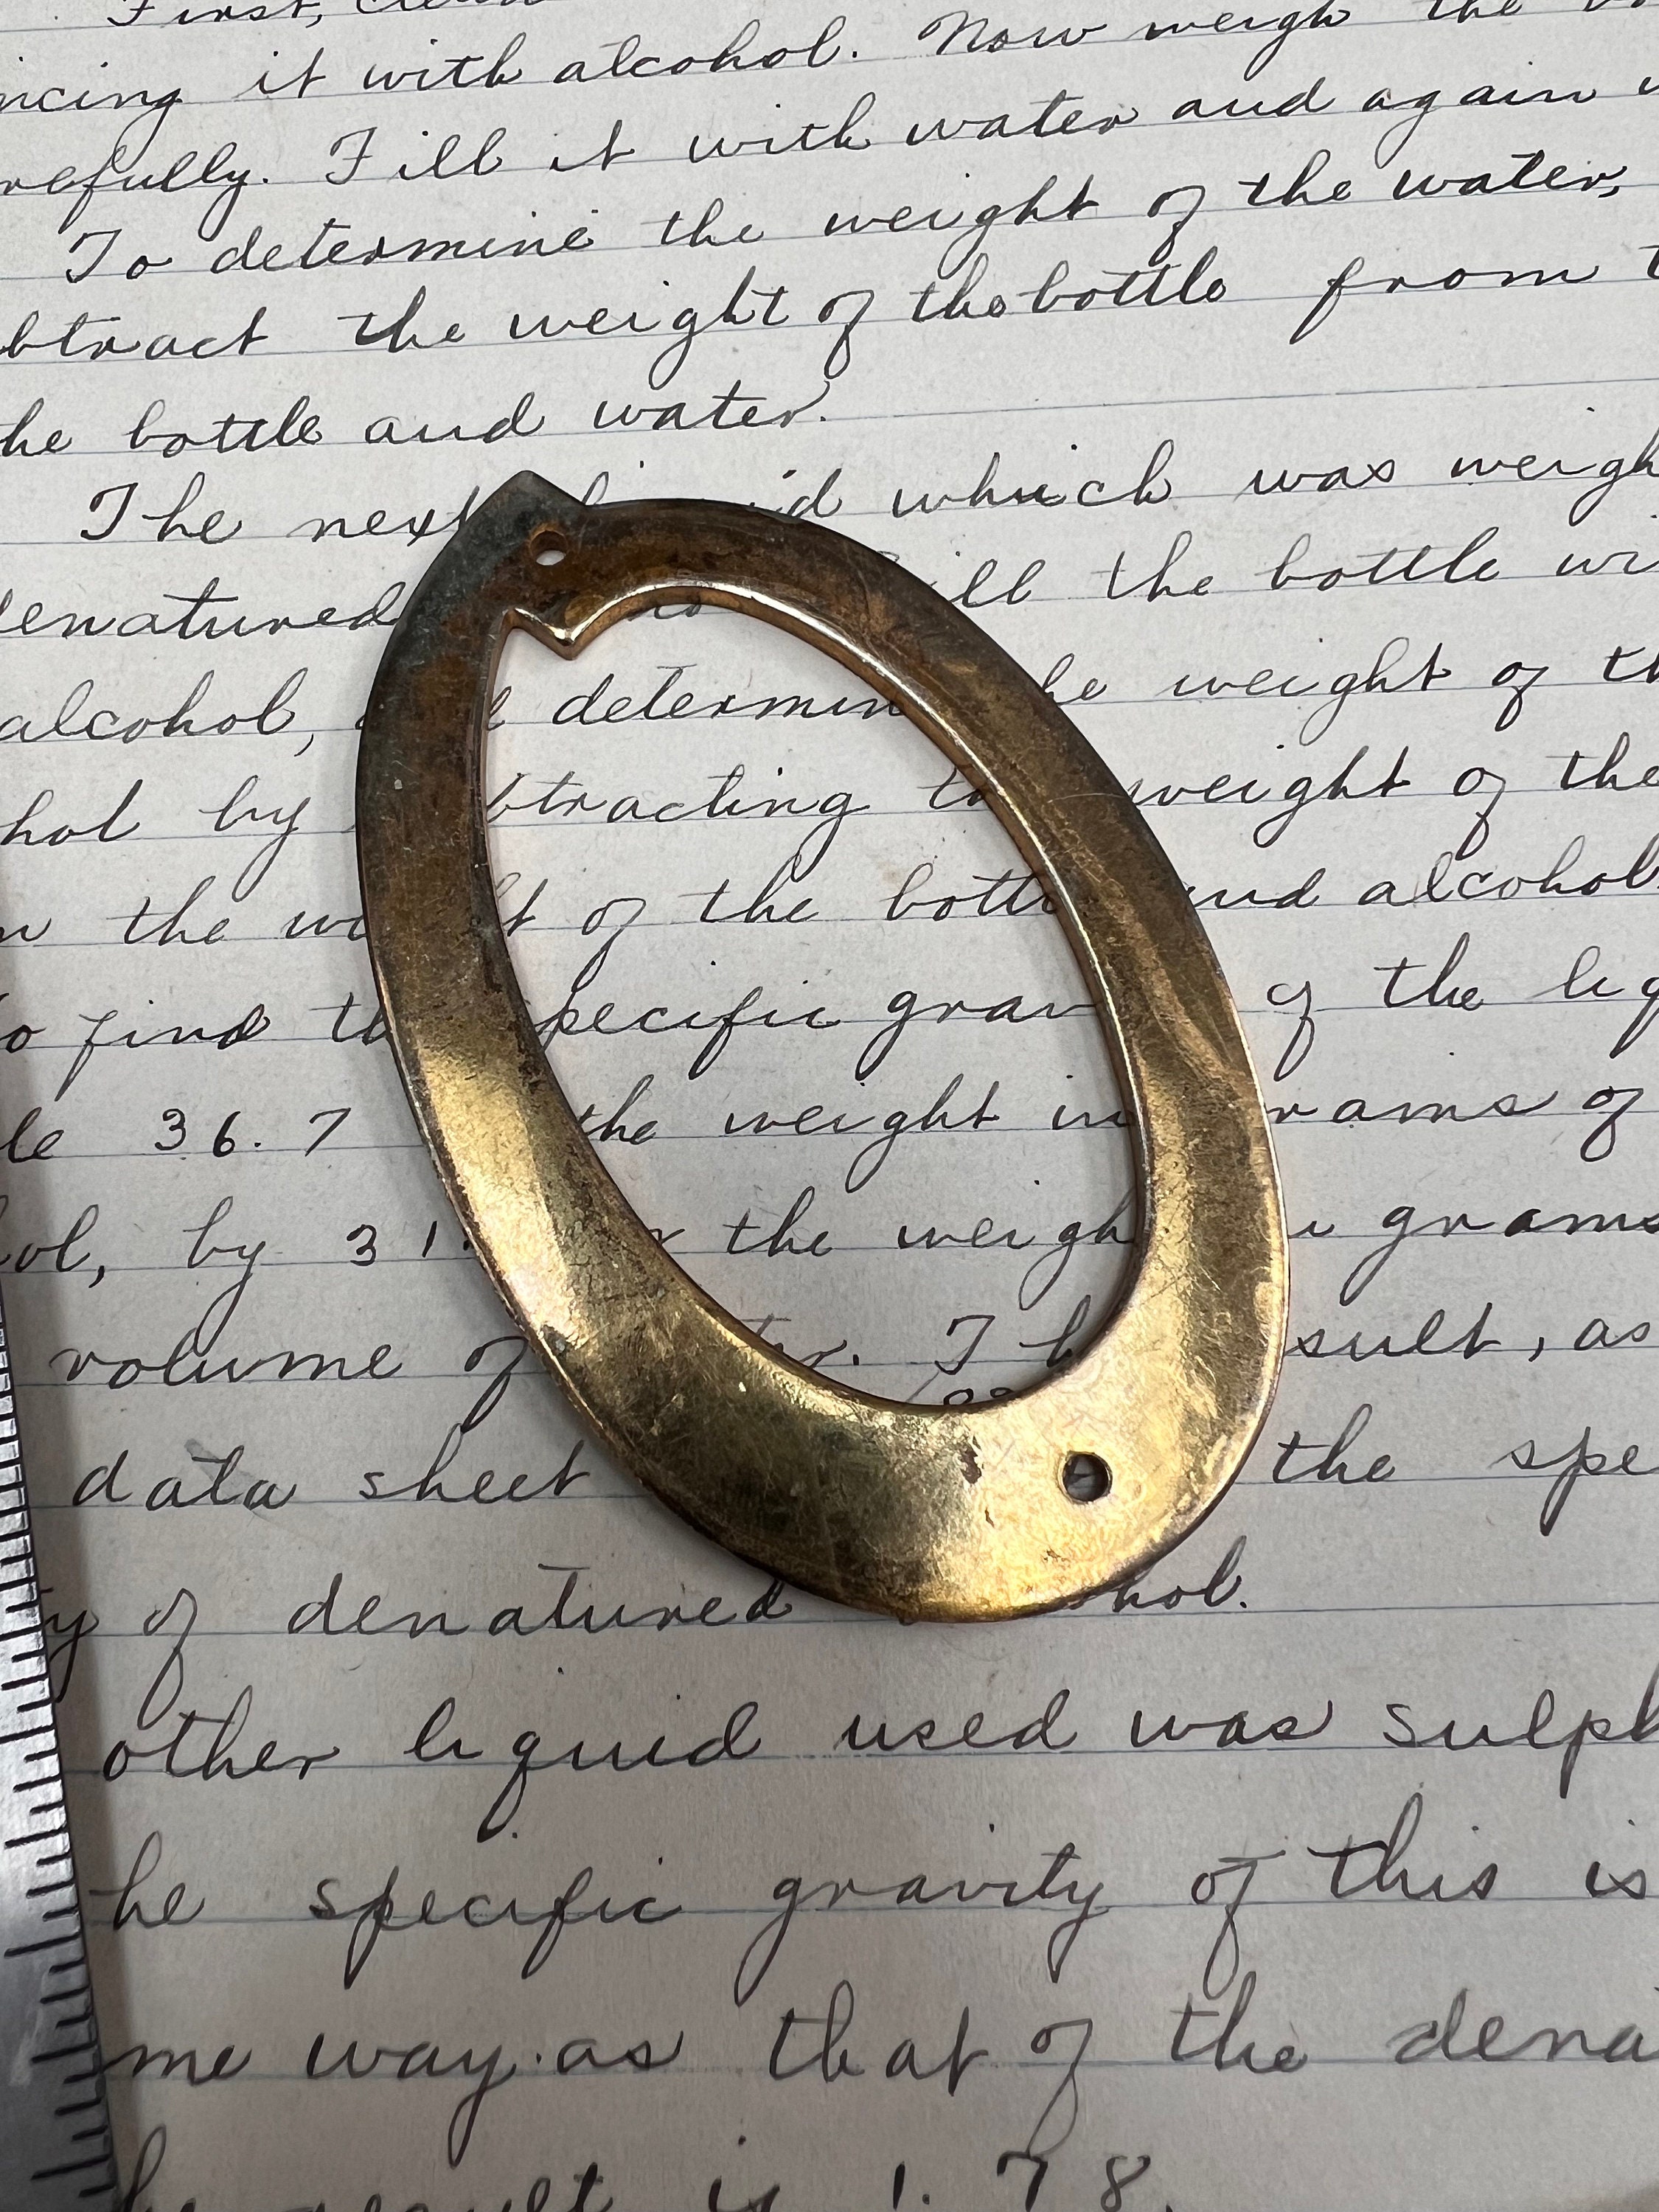 First,
ncing it with alcohol. Now weigh the
refully. Fill it with water and again
To determine the weight of the water,
btract the weight of the bottle from
he bottle and water.
The next which was weigh
denatured ill the bottle wi
alcohol, determin he weight of th
hol by btracting weight of the
n the of the bott and alcohol.
o find specific grav of the liq
le 36.7 the weight in rams of
ol, by 31. the weigh grams
volume of . Th sult, as
data sheet the spe
y of denatured hol.
other liquid used was sulph
he specific gravity of this is
me way as that of the dena
he result is 1.78.